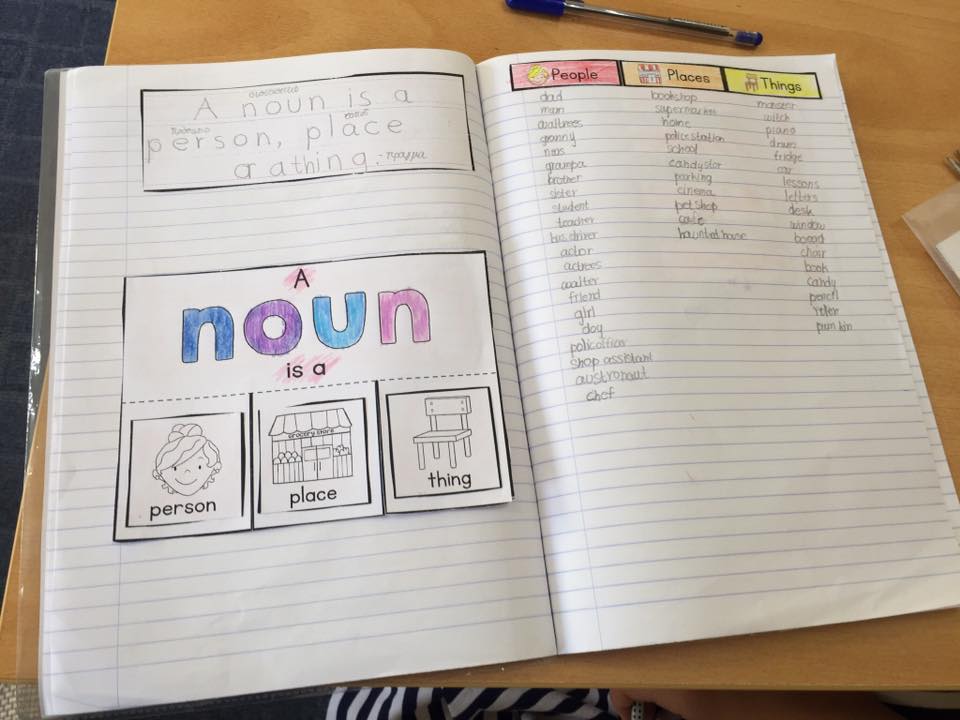 ουσιαστικό
A noun is a
πρόσωπο τόπος
person, place
or a thing -πράγμα
A
noun
is a
person
grocery store
place
thing
People
dad
mum
granny
grampa
brother
sister
student
teacher
bus driver
actor
actrees
waiter
friend
girl
shop assistant
austronaut
chef
Places
bookshop
supermarket
home
police station
school
candystor
parking
cinema
pet shop
cafe
haunted house
Things
monster
witch
piano
drum
fridge
car
lessons
letters
desk
window
board
chair
book
candy
pencil